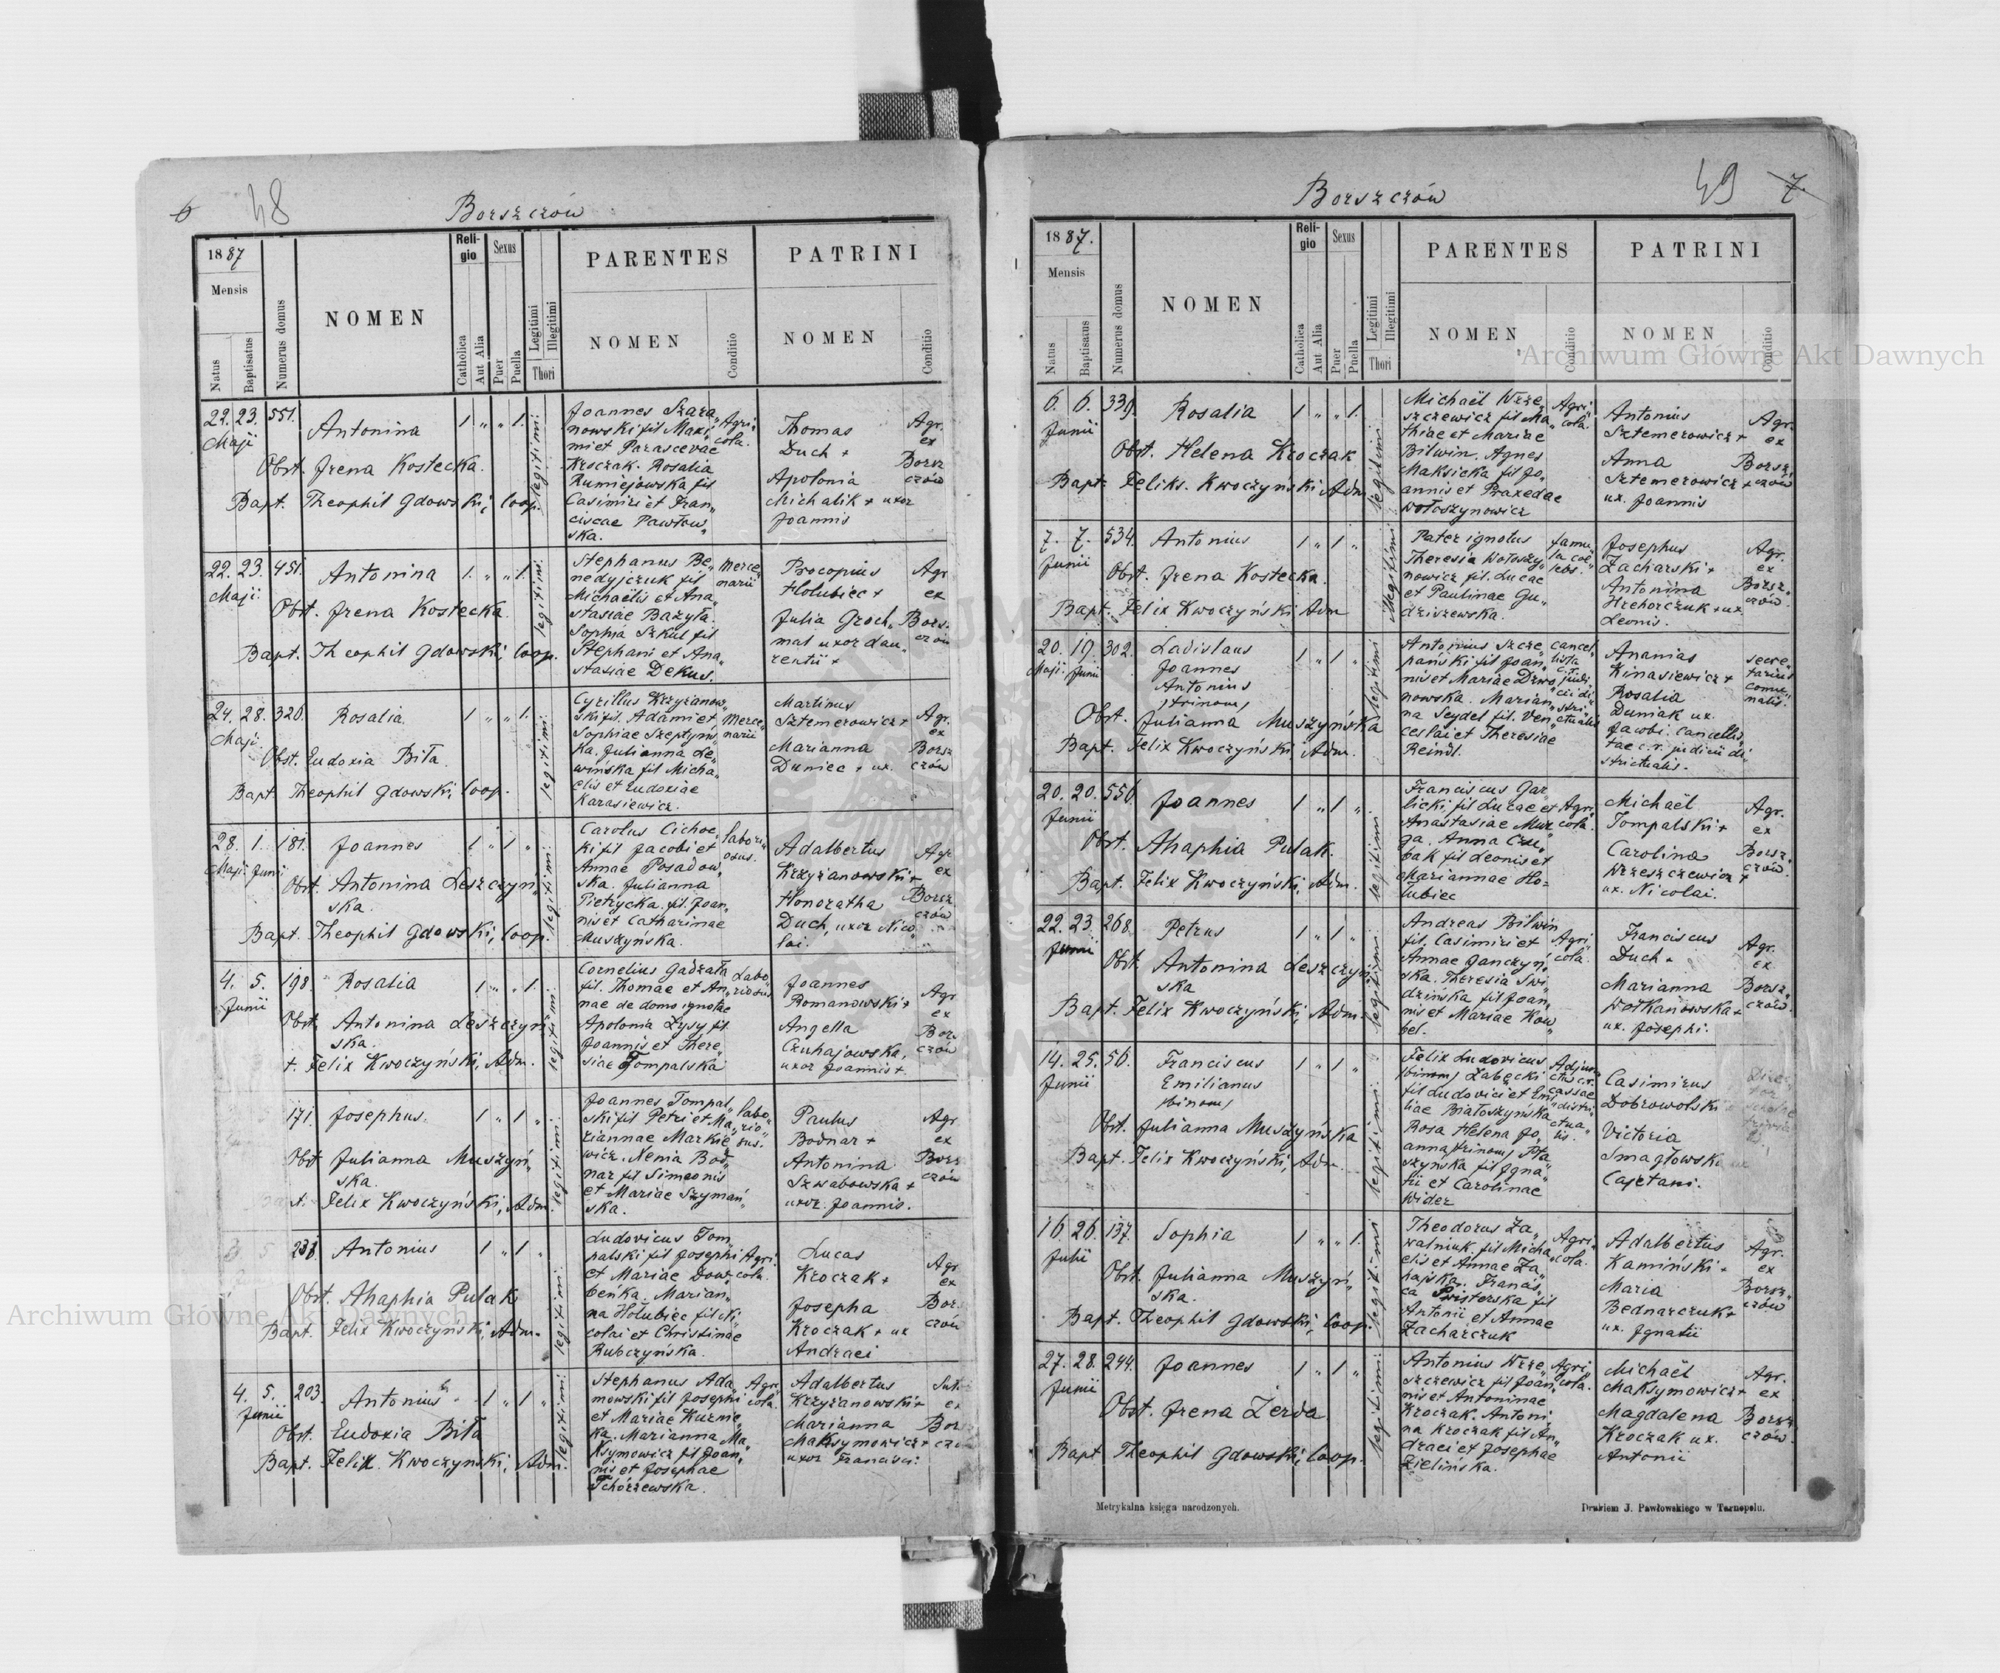 6 48
Borszczów
1887
Mensis
Natus
Baptisatus
Numerus domus
NOMEN
Religio
Catholica
Aut Alia
Sexus
Puer
Puella
Legitimi
Illegitimi
Thori
PARENTES
NOMEN
Conditio
PATRINI
NOMEN
Conditio
22. 23. 551. Antonina 1 " " 1.
Maji
Obst. Irena Kostecka.
Bapt. Theophil Gdowski, Coop.
legitimi.
Joannes Szara„
nowski fil Maxi„
mi et Parascevae
Kroczak. Rosalia
Rumiejowska fil
Casimiri et Fran„
ciscae Pawłow„
ska.
Agri„
cola.
Thomas
Duch +
Apolonia
Michalik + uxor
Joannis
Agr.
ex
Borsz
czów
22. 23. 451. Antonina 1. " " 1.
Maji.
Obst. Irena Kostecka
Bapt. Theophil Gdowski, Coop.
legitimi.
Stephanus Be„
nedyjczuk fil
Michaelis et Ana„
stasiae Bazyła.
Sophia Szkul fil
Stephani et Ana„
stasiae Dekus.
Merce„
narii
Procopius
Hołubiec +
Julia Groch„
mal uxor Lau„
rentii +
Agr
ex
Bors„
czów
24. 28. 320. Rosalia 1 " " 1.
Maji
Obst. Eudoxia Biła.
Bapt. Theophil Gdowski, Coop.
legitimi.
Cyrillus Krzyżanow„
ski fil. Adami et
Sophiae Szeptyńs„
ka. Julianna Le„
wińska fil Micha„
elis et Eudoxiae
Karasiewicz.
Merce„
narii
Martinus
Sztemerowicz +
Marianna
Duniec + ux.
Agr.
ex
Borsz
czów
28. 1. 181. Joannes 1 " 1 "
Maji Junii
Obst. Antonina Leszczyń„
ska.
Bapt. Theophil Gdowski, Coop.
legitimi.
Carolus Cichoc„
ki fil Jacobi et
Annae Posadow„
ska. Julianna
Pietrycka. fil. Joan„
nis et Catharinae
Muszyńska.
labori„
osus.
Adalbertus
Krzyżanowski +
Honoratha
Duch, uxor Nico„
lai.
Agr
ex
Borsz
czów
4. 5. 198. Rosalia 1 " " 1
Junii
Obst. Antonina Leszczyń„
ska.
t. Felix Kwoczyński, Adm.
legitimi.
Cornelius Gadzała
fil. Thomae et An„
nae de domo ignotae
Apolonia Łysy fil
Joannis et There„
siae Tompalska
Labo„
riosus
Joannes
Romanowski +
Angella
Czuhajowska,
uxor Joannis +
Agr
ex
Bors
czów
171. Josephus. 1 " 1 "
Obst Julianna Muszyń„
ska.
t. Felix Kwoczyński, Adm.
legitimi.
Joannes Tompal„
ski fil Petri et Ma„
riannae Markie„
wicz. Xenia Bod„
nar fil Simeonis
et Mariae Szymań„
ska.
labo„
rio„
sus.
Paulus
Bodnar +
Antonina
Szwabowska +
uxor. Joannis.
Agr
ex
Bors
czów
3 5 238 Antonius 1 " 1 "
Obst. Ahaphia Pulak
Bapt. Felix Kwoczyński, Adm.
legitimi.
Ludovicus Tom„
palski fil Josephi
et Mariae Dow„
beńka. Marian„
na Hołubiec fil Ni„
colai et Christinae
Rubczyńska.
Agri„
cola.
Lucas
Kroczak +
Josepha
Kroczak + ux
Andraei
Agr.
ex
Bors
czów
4. 5. 203. Antonius 1 " 1 "
Junii
Obst. Eudoxia Biła
Bapt. Felix Kwoczyński, Adm.
legitimi.
Stephanus Ada„
mowski fil Josephi
et Mariae Kuznic„
ka. Marianna Ma„
ksymowicz fil Joan„
nis et Josephae
Tchórzewska.
Agri„
cola.
Adalbertus
Krzyżanowski +
Marianna
Maksymowicz +
uxor Francisci.
ex
Bor
Borszczów
49 7.
1887.
Mensis
Natus
Baptisatus
Numerus domus
NOMEN
Religio
Catholica
Aut Alia
Sexus
Puer
Puella
Legitimi
Illegitimi
Thori
PARENTES
NOMEN
Conditio
PATRINI
NOMEN
Conditio
6. 6. 339. Rosalia 1 " " 1.
Junii
Obst. Helena Kroczak
Bapt. Feliks. Kwoczyński Adm
legitimi.
Michaël Wrze„
szczewicz fil Ma„
thiae et Mariae
Bilwin. Agnes
Maksicka fil Jo„
annis et Praxedae
Wołoszynowicz
Agri„
cola.
Antonius
Sztemerowicz +
Anna
Sztemerowicz +
ux. Joannis
Agr.
ex
Borsz,
czów
7. 7. 534. Antonius 1 " 1 "
Junii
Obst. Irena Kostecka.
Bapt. Felix Kwoczyński Adm
illegitimi
Pater ignotus
Theresia Wołoszy„
nowicz fil. Lucae
et Paulinae Gu„
dziszewska.
famu„
la coe„
lebs.
Josephus
Zacharski +
Antonina
Hrehorczuk + ux
Leonis.
Agr.
ex
Borsz„
czów
20. 19. 302. Ladislaus 1 " 1 "
Maji. Junii Joannes
Antonius
/trinom/
Obst. Julianna Muszyńska
Bapt. Felix Kwoczyński, Adm.
legitimi
Antonius Szcze„
pański fil Joan„
nis et Mariae Drwo„
nowska. Marian„
na Seydel fil. Ven„
ceslai et Theresiae
Reindl.
cancel„
lista
c.r.
judi„
cii di„
stri„
ctualis
Ananias
Kinasiewicz +
Rosalia
Duniak ux.
Jacobi. cancellis„
tae c.r. judicii di„
strictualis.
secre„
tarius
commu„
nalis.
20. 20. 556. Joannes 1 " 1 "
Junii
Obst. Ahaphia Pulak.
Bapt. Felix Kwoczyński, Adm.
legitimi
Franciscus Gar„
licki, fil Lucae et
Anastasiae Mur„
ga. Anna Czu„
bak fil Leonis et
Mariannae Ho„
łubiec
Agri„
cola.
Michaël
Tompalski +
Carolina
Wrzeszczewicz +
ux. Nicolai.
Agr.
ex
Borsz„
czów.
22. 23. 268. Petrus 1 " 1 "
Junii
Obst. Antonina Leszczyń„
ska
Bapt. Felix Kwoczyński, Adm.
legitimi
Andreas Bilwin
fil. Casimiri et
Annae Ganczyń„
ska. Theresia Świ„
dzińska fil Joan„
nis et Mariae Kow„
bel.
Agri„
cola.
Franciscus
Duch +
Marianna
Wołkanowska +
ux. Josephi.
Agr.
ex
Borsz„
czów.
14. 25. 56. Franciscus 1 " 1 "
Junii Emilianus
/binom/
Obst. Julianna Muszyńska
Bapt. Felix Kwoczyński, Adm.
legitimi.
Felix Ludovicus
/binom/ Zabęcki
fil Ludovici et Emi„
liae Białoszyńska
Rosa Helena Jo„
anna /trinom/ Pta„
szyńska fil Igna„
tii et Carolinae
Wider
Adjun„
ctus c.r.
cassae
distri„
ctua„
lis.
Casimirus
Dobrowolski
Victoria
Smagłowska
Cajetani.
16. 26. 137. Sophia 1 " " 1.
Julii
Obst. Julianna Muszyń„
ska.
Bapt. Theophil Gdowski, Coop.
legitimi
Theodorus Za„
walniuk. fil Micha„
elis et Annae Za„
hajska. Francis„
ca Pristerska fil
Antonii et Annae
Zacharczuk
Agri„
cola.
Adalbertus
Kamiński +
Maria
Bednarczuk +
ux. Ignatii
Agr.
ex
Borsz„
czów
27. 28. 244. Joannes 1 " 1 "
Junii
Obst. Irena Zerda
Bapt Theophil Gdowski, Coop.
legitimi.
Antonius Wrze„
szczewicz fil Joan„
nis et Antoninae
Kroczak. Antoni„
na Kroczak fil An„
draei et Josephae
Zielińska.
Agri„
cola.
Michaël
Maksymowicz +
Magdalena
Kroczak ux.
Antonii
Agr.
ex
Borsz
czów.
Metrykalna księga narodzonych.
Drukiem J. Pawłowskiego w Tarnopolu.
Archiwum Główne Akt Dawnych
Archiwum Główne Akt Dawnych